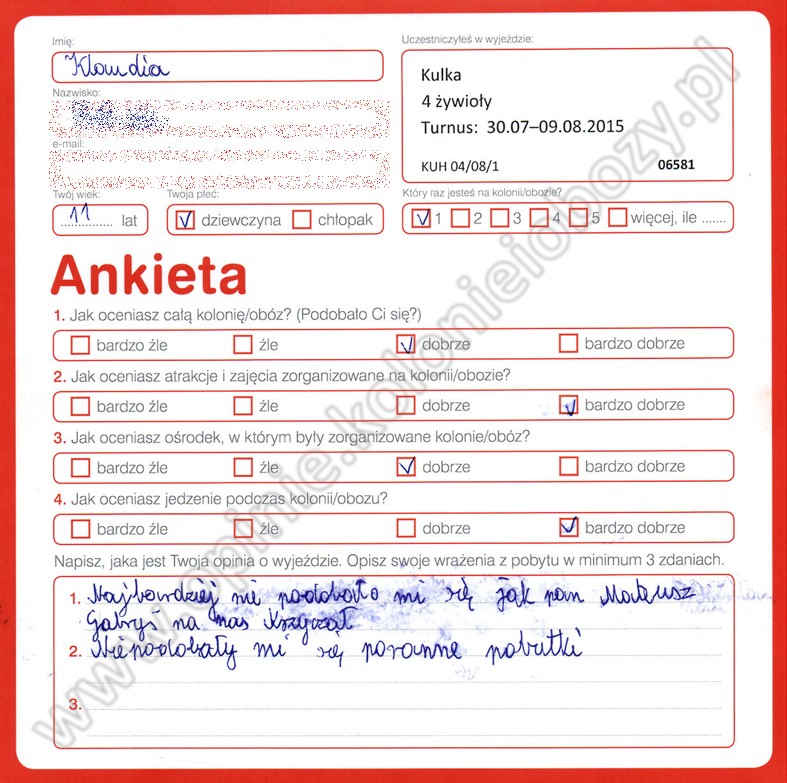 Imię:
Klaudia
Uczestniczyłeś w wyjeździe:
Kulka
4 żywioły
Turnus: 30.07–09.08.2015
KUH 04/08/1 06581
Nazwisko:
e-mail:
Twój wiek:
11 lat
Twoja płeć:
dziewczyna chłopak
Który raz jesteś na kolonii/obozie?
1 2 3 4 5 więcej, ile .......
Ankieta
1. Jak oceniasz całą kolonię/obóz? (Podobało Ci się?)
bardzo źle źle dobrze bardzo dobrze
2. Jak oceniasz atrakcje i zajęcia zorganizowane na kolonii/obozie?
bardzo źle źle dobrze bardzo dobrze
3. Jak oceniasz ośrodek, w którym były zorganizowane kolonie/obóz?
bardzo źle źle dobrze bardzo dobrze
4. Jak oceniasz jedzenie podczas kolonii/obozu?
bardzo źle źle dobrze bardzo dobrze
Napisz, jaka jest Twoja opinia o wyjeździe. Opisz swoje wrażenia z pobytu w minimum 3 zdaniach.
1. Najbardziej nie podobało mi się jak pan Mateusz
Gabryś na nas krzyczał
2. Niepodobały mi się poranne pobutki
3.
www.opinie.kolonieiobozy.pl